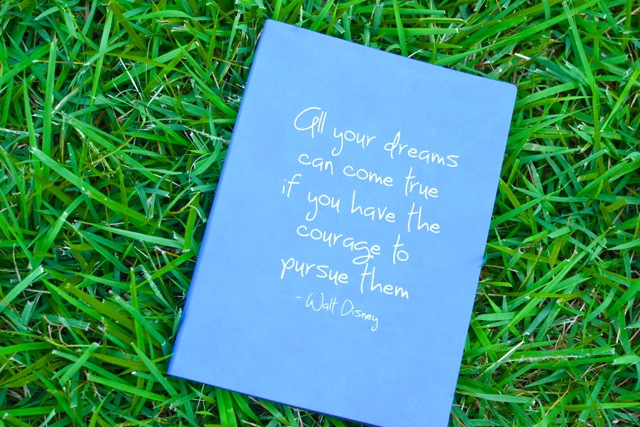 All your dreams
can come true
if you have the
courage to
pursue them
- Walt Disney